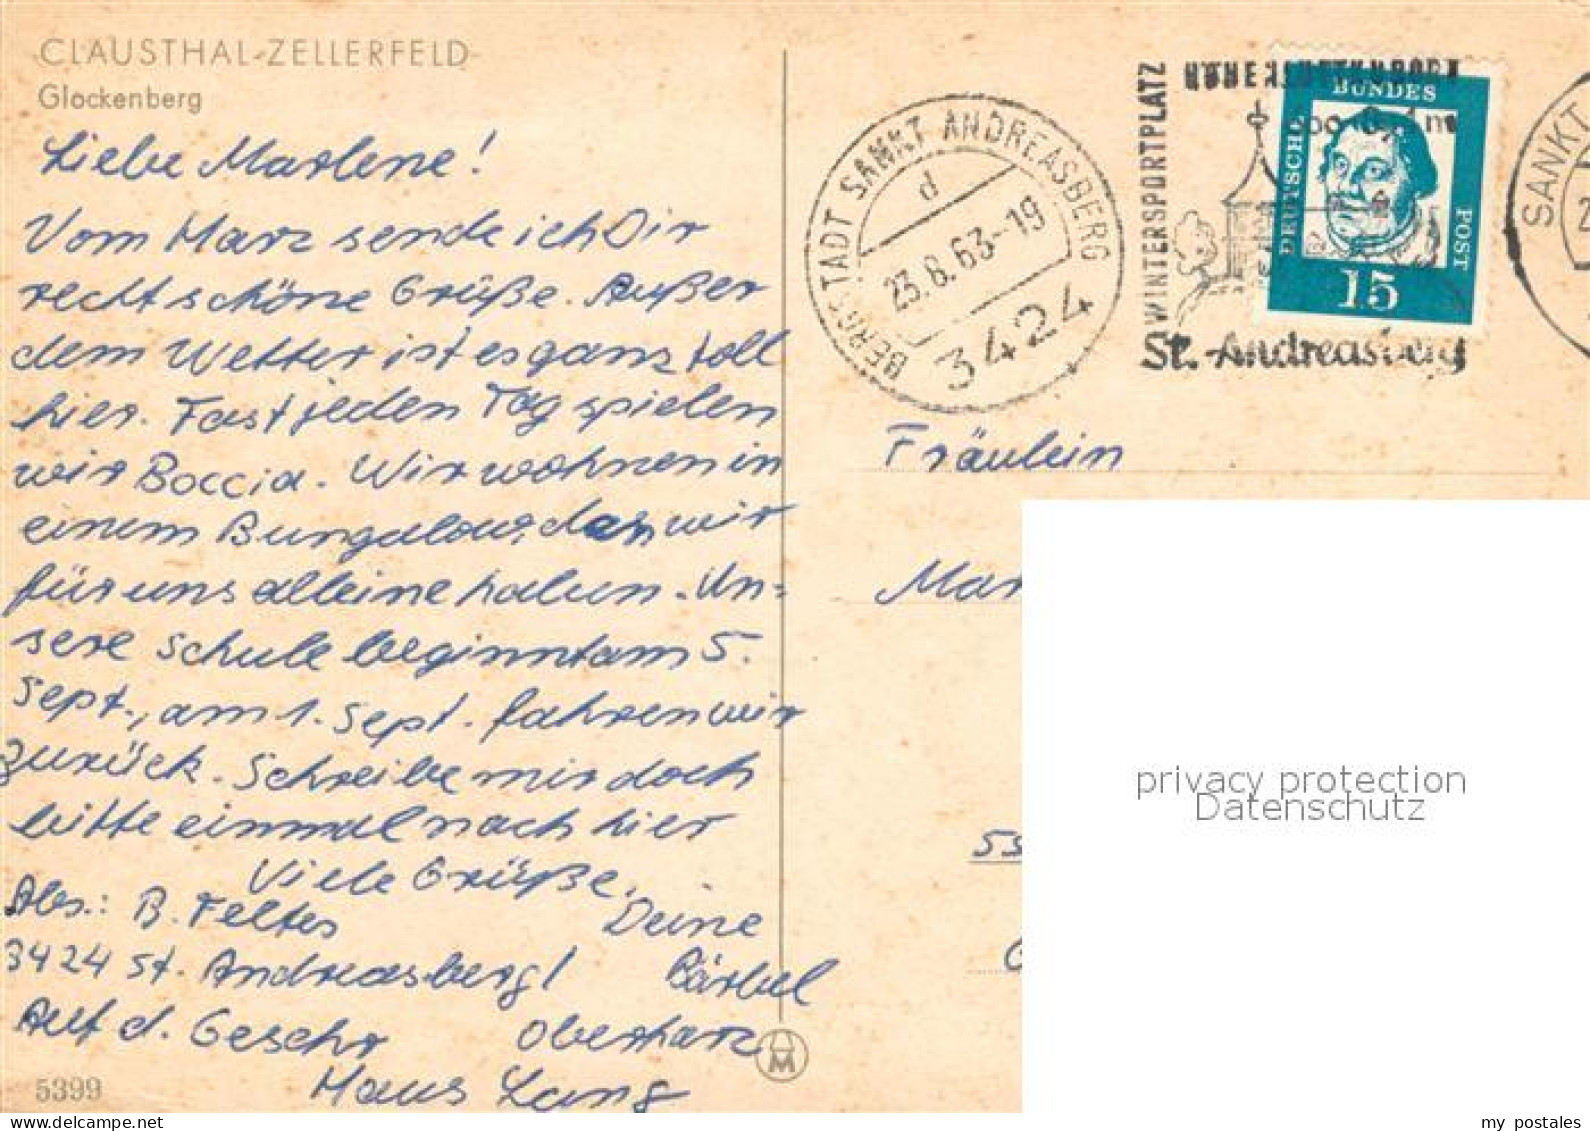 CLAUSTHAL-ZELLERFELD
Glockenberg
Liebe Marlene!
Vom Harz sende ich Dir
recht schöne Grüße. Außer
dem Wetter ist es ganz toll
hier. Fast jeden Tag spielen
wir Boccia. Wir wohnen in
einem Bungalow, den wir
für uns alleine haben. Un=
sere Schule beginnt am 5.
Sept., am 1. Sept. fahren wir
zurück. Schreibe mir doch
bitte einmal nach hier
Viele Grüße,
Deine
Bärbel
Abs.: B. Feltes
3424 St. Andreasberg/
Oberharz
Auf d. Geschr
Haus Lang
5399
BERGSTADT SANKT ANDREASBERG
d
23.8.63-19
3424
WINTERSPORTPLATZ
St. Andreasberg
DEUTSCHE
BUNDES
POST
15
SANKT
Fräulein
Mar
53
privacy protection
Datenschutz
my postales